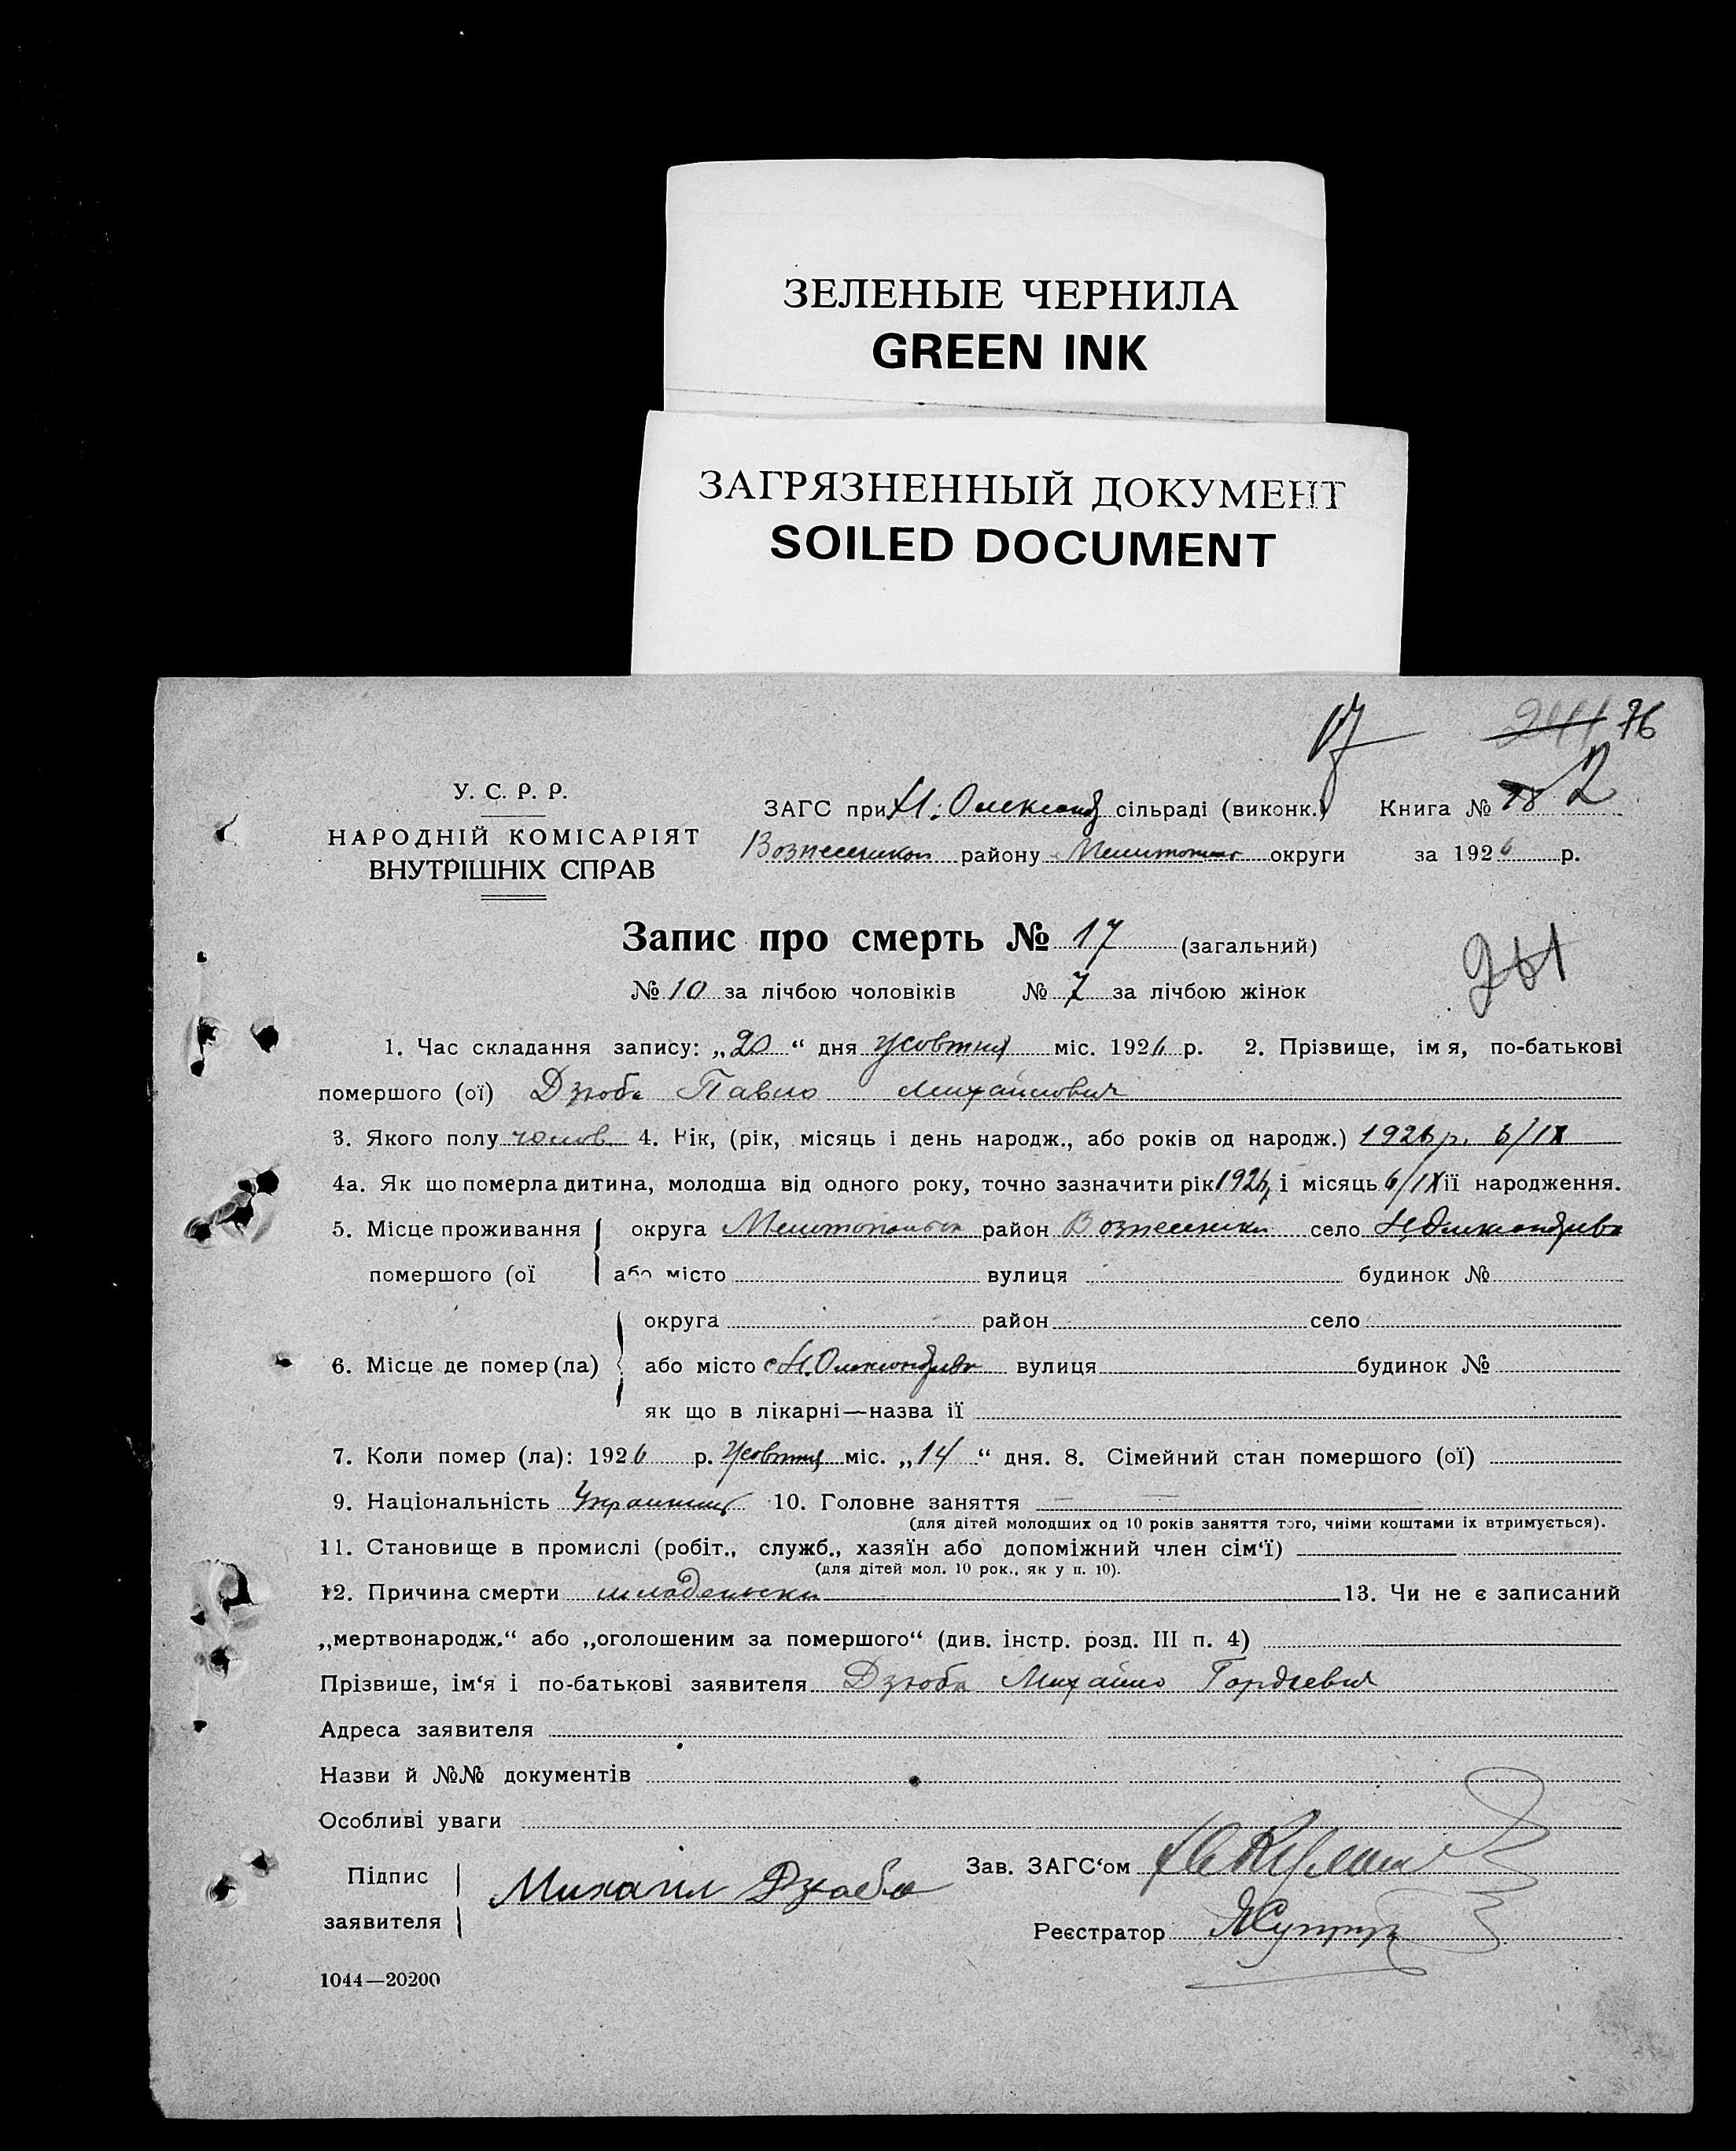 ЗЕЛЕНЫЕ ЧЕРНИЛА
GREEN INK
ЗАГРЯЗНЕННЫЙ ДОКУМЕНТ
SOILED DOCUMENT
17 76
У. С. Р. Р.
НАРОДНІЙ КОМІСАРІЯТ
ВНУТРІШНІХ СПРАВ
ЗАГС при Н. Олександ сільраді (виконк.) Книга № 2
Вознесенскої району округи за 1926 р.
Запис про смерть № 17 (загальний)
261
№ 10 за лічбою чоловіків № 7 за лічбою жінок
1. Час складання запису: „20“ дня Жовтня міс. 1926 р. 2. Прізвище, імя, по-батькові
помершого (ої) Дзюба Павло Михайлович
3. Якого полу чолов. 4. Вік, (рік, місяць і день народж., або років од народж.) 1926 р. 6/IX
4а. Як що померла дитина, молодша від одного року, точно зазначити рік 1926 і місяць 6/IX її народження.
5. Місце проживання округа Мелитопольск район Вознесенски село Н Олександривка
помершого (ої або місто вулиця будинок №
округа район село
6. Місце де помер (ла) або місто с Н. Олександривка вулиця будинок №
як що в лікарні—назва ії
7. Коли помер (ла): 1926 р. Жовтня міс. „14“ дня. 8. Сімейний стан помершого (ої)
9. Національність Українець 10. Головне заняття
(для дітей молодших од 10 років заняття того, чиїми коштами їх втримується).
11. Становище в промислі (робіт., служб., хазяїн або допоміжний член сім‘ї)
(для дітей мол. 10 рок., як у п. 10).
12. Причина смерти младенски 13. Чи не є записаний
„мертвонародж.“ або „оголошеним за помершого“ (див. інстр. розд. III п. 4)
Прізвише, ім‘я і по-батькові заявителя Дзюба Михайло Гордіевич
Адреса заявителя
Назви й №№ документів
Особливі уваги
Підпис Михаил Дзюба Зав. ЗАГС‘ом
заявителя
Реєстратор
1044—20200